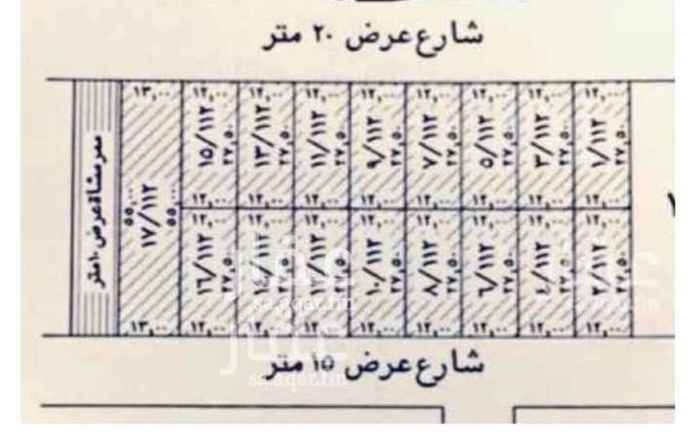 شارع عرض ٢٠ متر
١٣,٠٠ ١٢,٠٠ ١٢,٠٠ ١٢,٠٠ ١٢,٠٠ ١٢,٠٠ ١٢,٠٠ ١٢,٠٠ ١٢,٠٠
ممر مشاة عرض ١٠ متر
٥٥,٠٠
١٧/١١٢
٥٥,٠٠
١٥/١١٢
٢٧,٥٠
١٣/١١٢
٢٧,٥٠
١١/١١٢
٢٧,٥٠
٩/١١٢
٢٧,٥٠
٧/١١٢
٢٧,٥٠
٥/١١٢
٢٧,٥٠
٣/١١٢
٢٧,٥٠
١/١١٢
٢٧,٥٠
١٢,٠٠ ١٢,٠٠ ١٢,٠٠ ١٢,٠٠ ١٢,٠٠ ١٢,٠٠ ١٢,٠٠ ١٢,٠٠
١٢,٠٠ ١٢,٠٠ ١٢,٠٠ ١٢,٠٠ ١٢,٠٠ ١٢,٠٠ ١٢,٠٠ ١٢,٠٠
١٦/١١٢
٢٧,٥٠
١٤/١١٢
٢٧,٥٠
١٢/١١٢
٢٧,٥٠
١٠/١١٢
٢٧,٥٠
٨/١١٢
٢٧,٥٠
٦/١١٢
٢٧,٥٠
٤/١١٢
٢٧,٥٠
٢/١١٢
٢٧,٥٠
١٣,٠٠ ١٢,٠٠ ١٢,٠٠ ١٢,٠٠ ١٢,٠٠ ١٢,٠٠ ١٢,٠٠ ١٢,٠٠ ١٢,٠٠
شارع عرض ١٥ متر
عقار
sa.aqar.fm
عقار
sa.aqar.fm